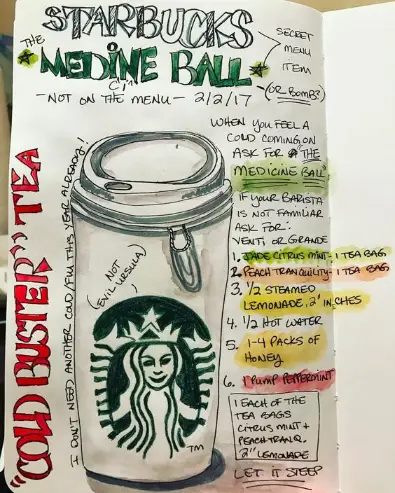 STARBUCKS
THE
MEDINE BALL
CI^
-NOT ON THE MENU - 2/2/17
SECRET
MENU
ITEM
(OR BOMB?)
"COLD BUSTER" TEA
I DON'T NEED ANOTHER COLD/FLU THIS YEAR ALREADY!
(NOT
EVIL URSULA)
TM
WHEN YOU FEEL A
COLD COMING ON
ASK FOR "THE
MEDICINE BALL"
IF YOUR BARISTA
IS NOT FAMILIAR
ASK FOR:
VENTI, OR GRANDE
1. JADE CITRUS MINT - 1 TEA BAG
2. PEACH TRANQUILITY - 1 TEA BAG
3. 1/2 STEAMED
LEMONADE, 2" INCHES
4. 1/2 HOT WATER
5. 1-4 PACKS OF
HONEY
6. 1 PUMP PEPPERMINT
1 EACH OF THE
TEA BAGS
CITRUS MINT +
PEACH TRANQ.
2" LEMONADE
LET IT STEEP